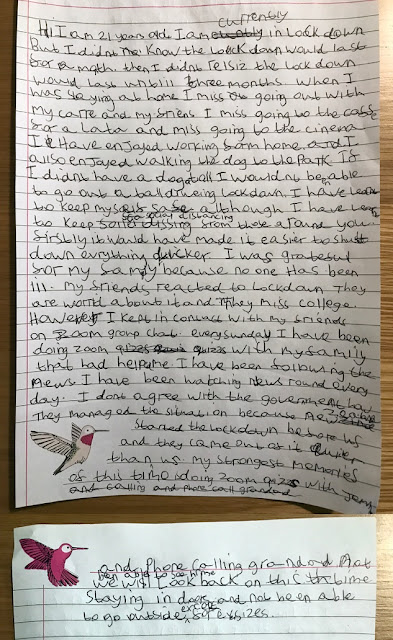 currently
Hi I am 21 year old I am in lock down
But I didnt know the lockdown would last
for a month. then I didnt relsiz the lock down
would last until three months when I
was staying at home I miss going out with
my carre and my friens I miss going to the cafe
for a Lata and miss going to the cinema
I Have enjoyed working from home. and I
allso enjoyed walking the dog to the Park If
I didn't have a dog atall I would not be able
to go out atall during lockdown. I have learn
to keep my self safe although I have learn
to keep social distancing from those around you.
firstly it would have made it easier to shutt
down evrything quicker I was grateful
for my family because no one has been
ill. my friends reacted to lockdown they
are world about it and They miss college
However I kept in contact with my friends
on Zoom group chat. every sunday I have been
doing zoom quizes with my family
that had help me I have been following the
news I have been watching news round every
day. I dont agree with the government how
They managed the situation because new Zealand
started the lockdown before us
and they came out of it quier
than us. my strongest memories
of this time doing zoom quizs with family
and calling and phone call grandad
and phone calling grandad that
been able to see hime
we will look back on this the time
staying in doors and not been able
to go outside except for exssizes.